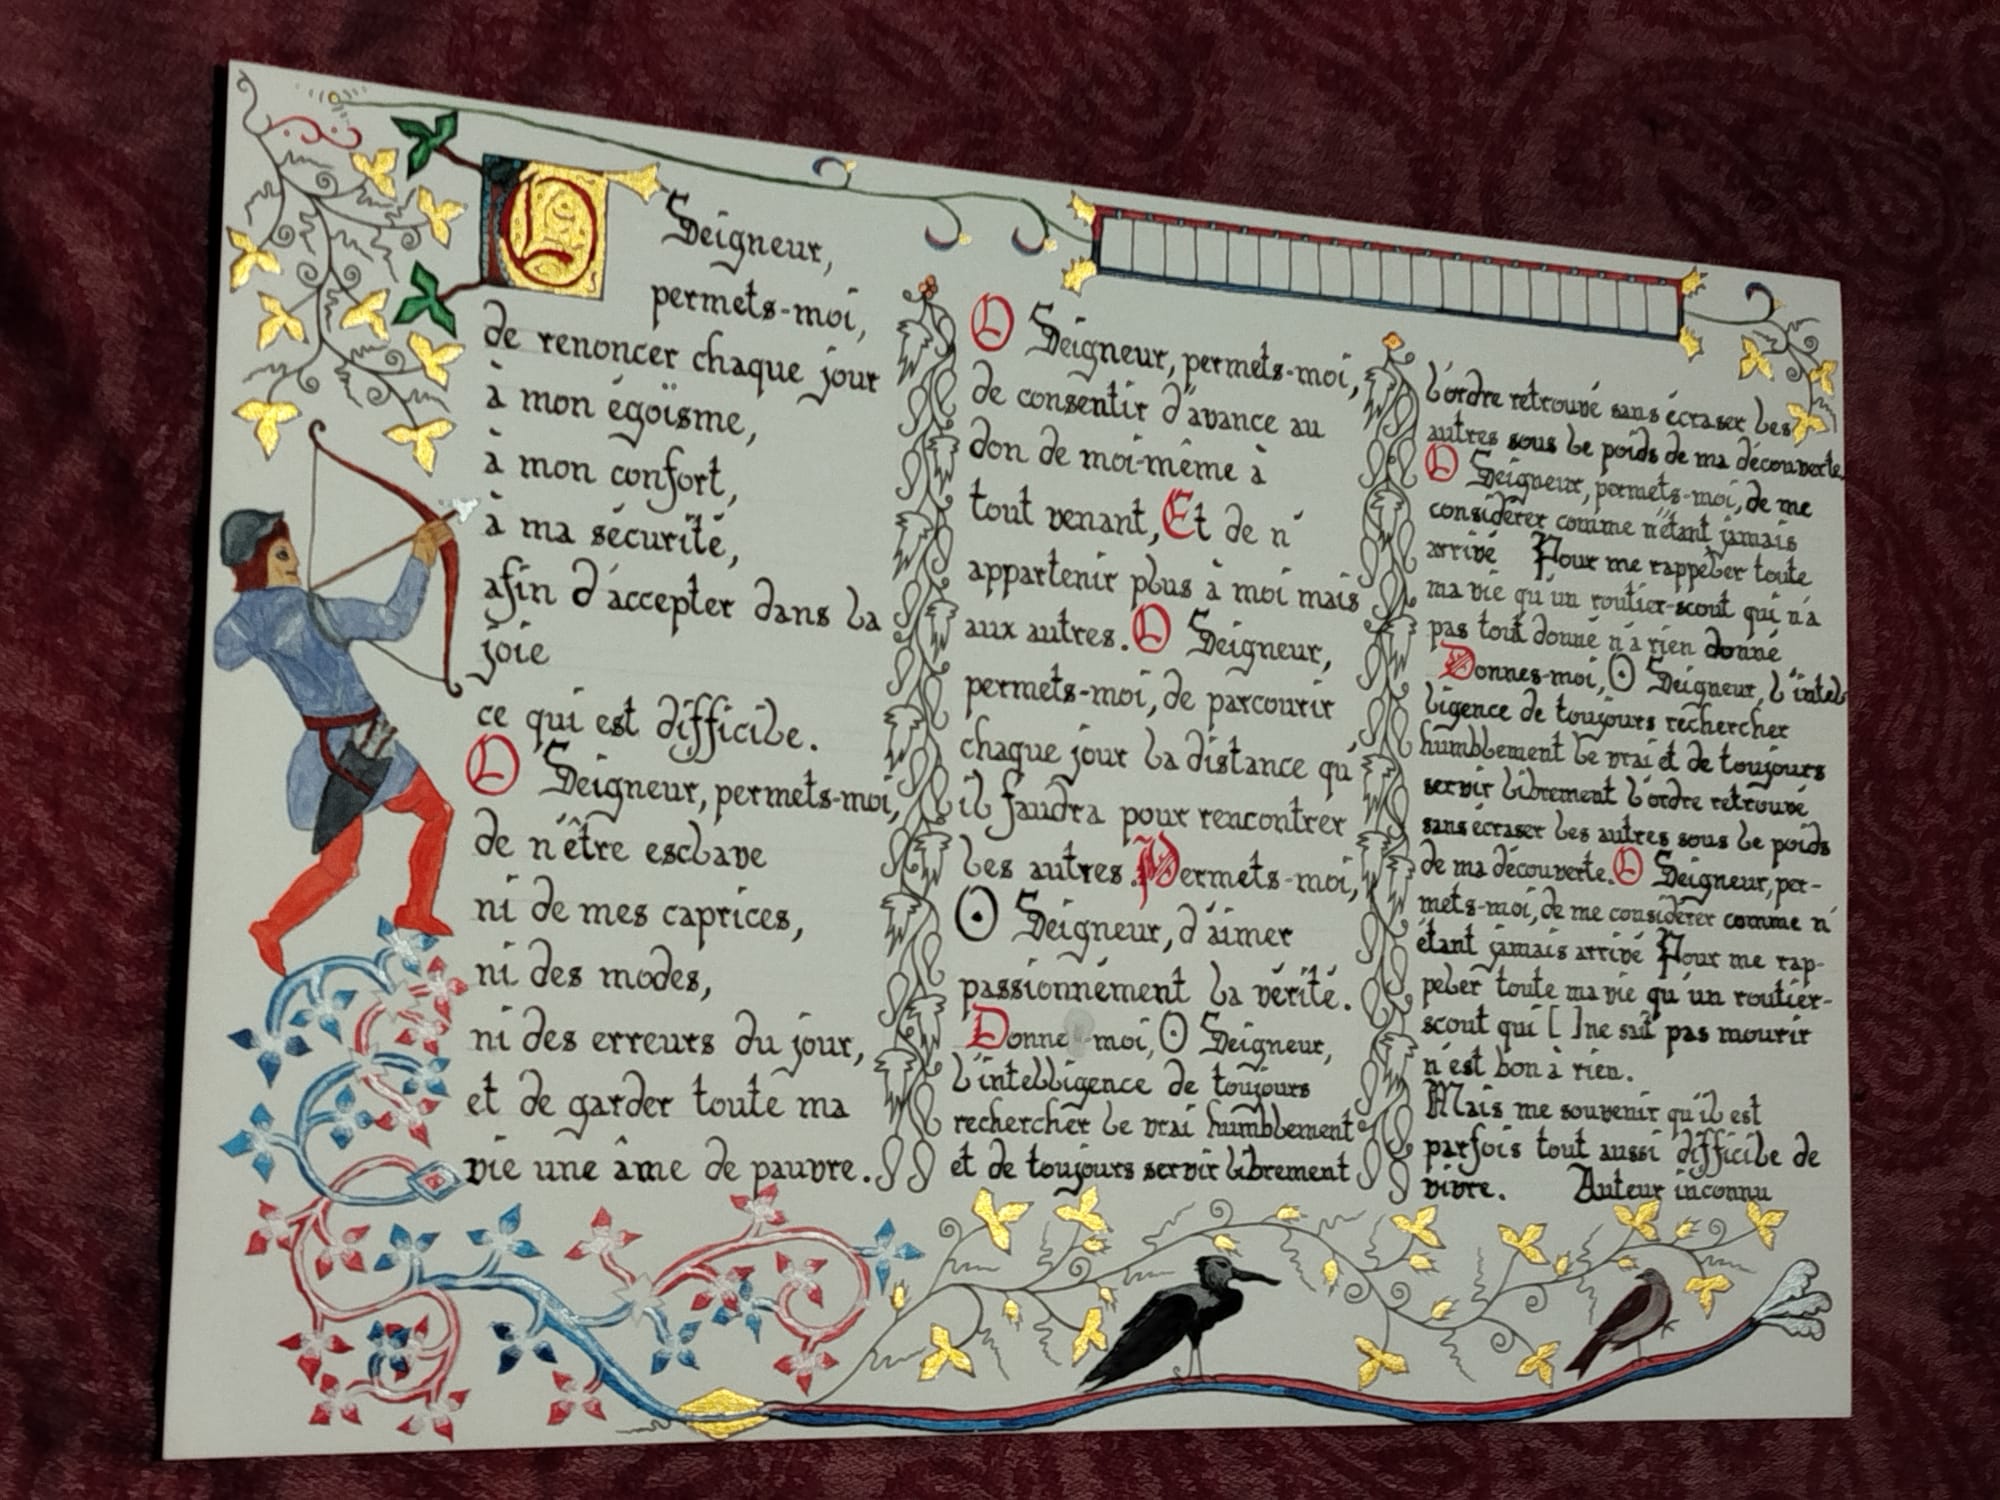 O Seigneur,
permets-moi,
de renoncer chaque jour
à mon égoïsme,
à mon confort,
à ma sécurité,
afin d'accepter dans la
joie
ce qui est difficile.
O Seigneur, permets-moi,
de n'être esclave
ni de mes caprices,
ni des modes,
ni des erreurs du jour,
et de garder toute ma
vie une âme de pauvre.
O Seigneur, permets-moi,
de consentir d'avance au
don de moi-même à
tout venant, Et de n'
appartenir plus à moi mais
aux autres. O Seigneur,
permets-moi, de parcourir
chaque jour la distance qu'
il faudra pour rencontrer
les autres. Permets-moi,
O Seigneur, d'aimer
passionnément la vérité.
Donne moi, O Seigneur,
l'intelligence de toujours
rechercher le vrai humblement
et de toujours servir librement
l'ordre retrouvé sans écraser les
autres sous le poids de ma découverte.
O Seigneur, permets-moi, de me
considérer comme n'étant jamais
arrivé Pour me rappeler toute
ma vie qu'un routier-scout qui n'a
pas tout donné n'a rien donné
Donnes-moi, O Seigneur, l'intel
ligence de toujours rechercher
humblement le vrai et de toujours
servir librement l'ordre retrouvé
sans écraser les autres sous le poids
de ma découverte. O Seigneur, per-
mets-moi, de me considérer comme n'
étant jamais arrivé Pour me rap-
peler toute ma vie qu'un routier-
scout qui [ ]ne sait pas mourir
n'est bon à rien.
Mais me souvenir qu'il est
parfois tout aussi difficile de
vivre. Auteur inconnu